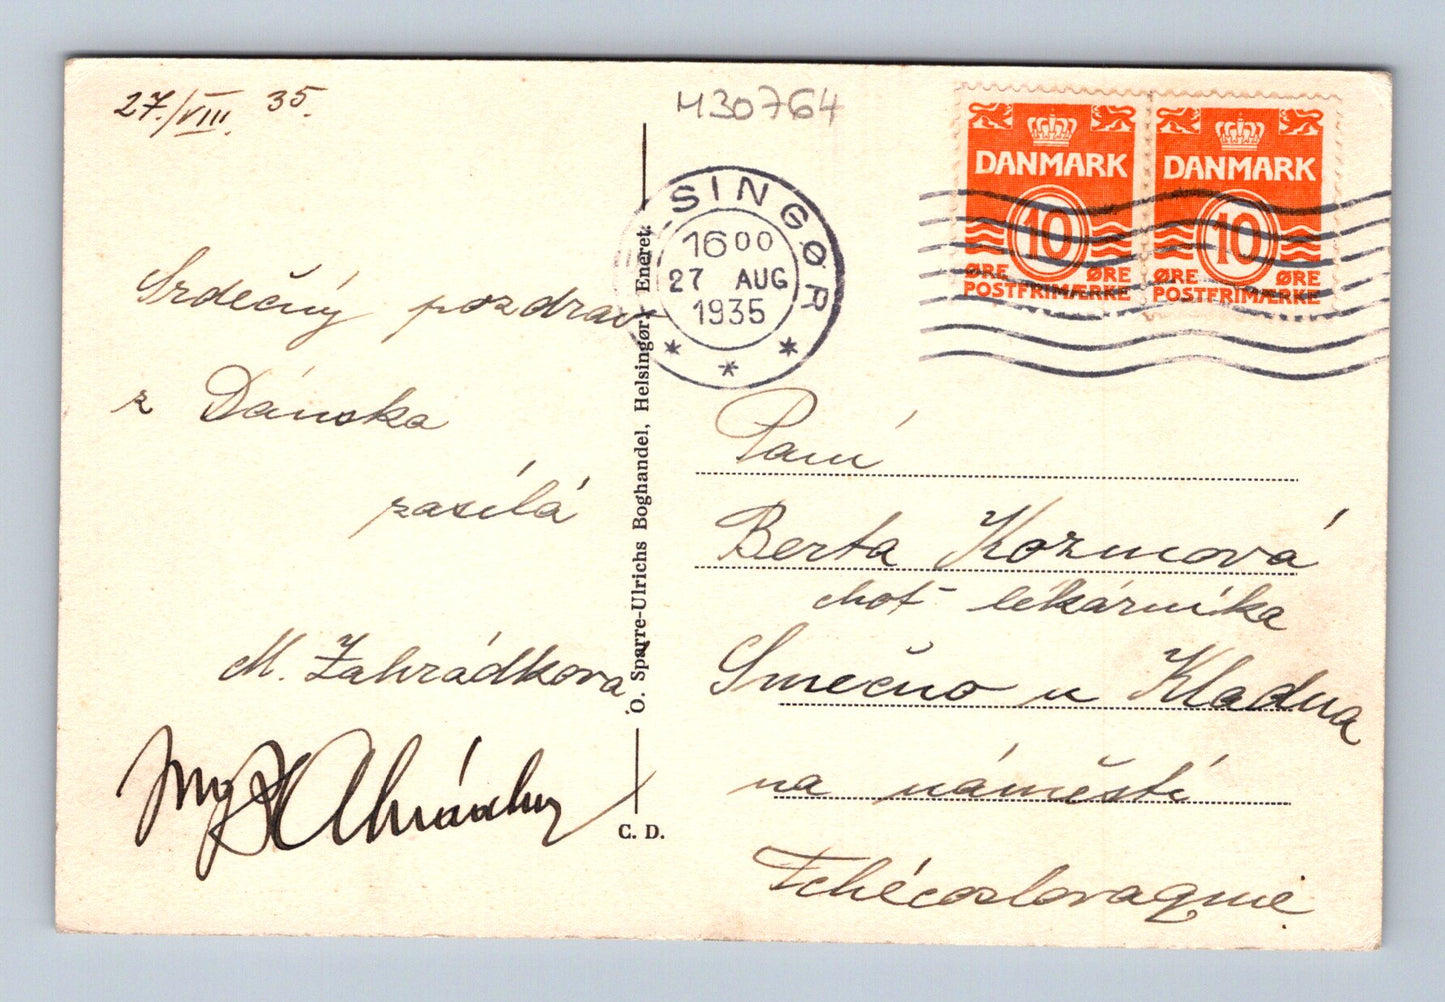 27./VIII. 35.
Srdečný pozdrav
z Dánska
zasílá
M. Zahrádkova
Ing
O. Sparre-Ulrichs Boghandel, Helsingør. Eneret.
C. D.
H30764
SINGØR
16 00
27 AUG
1935
DANMARK
10
ØRE ØRE
POSTFRIMÆRKE
DANMARK
10
ØRE ØRE
POSTFRIMÆRKE
Paní
Berta Kozmová
chot lékárníka
Smečno u Kladna
na náměstí
Tchécoslovaquie